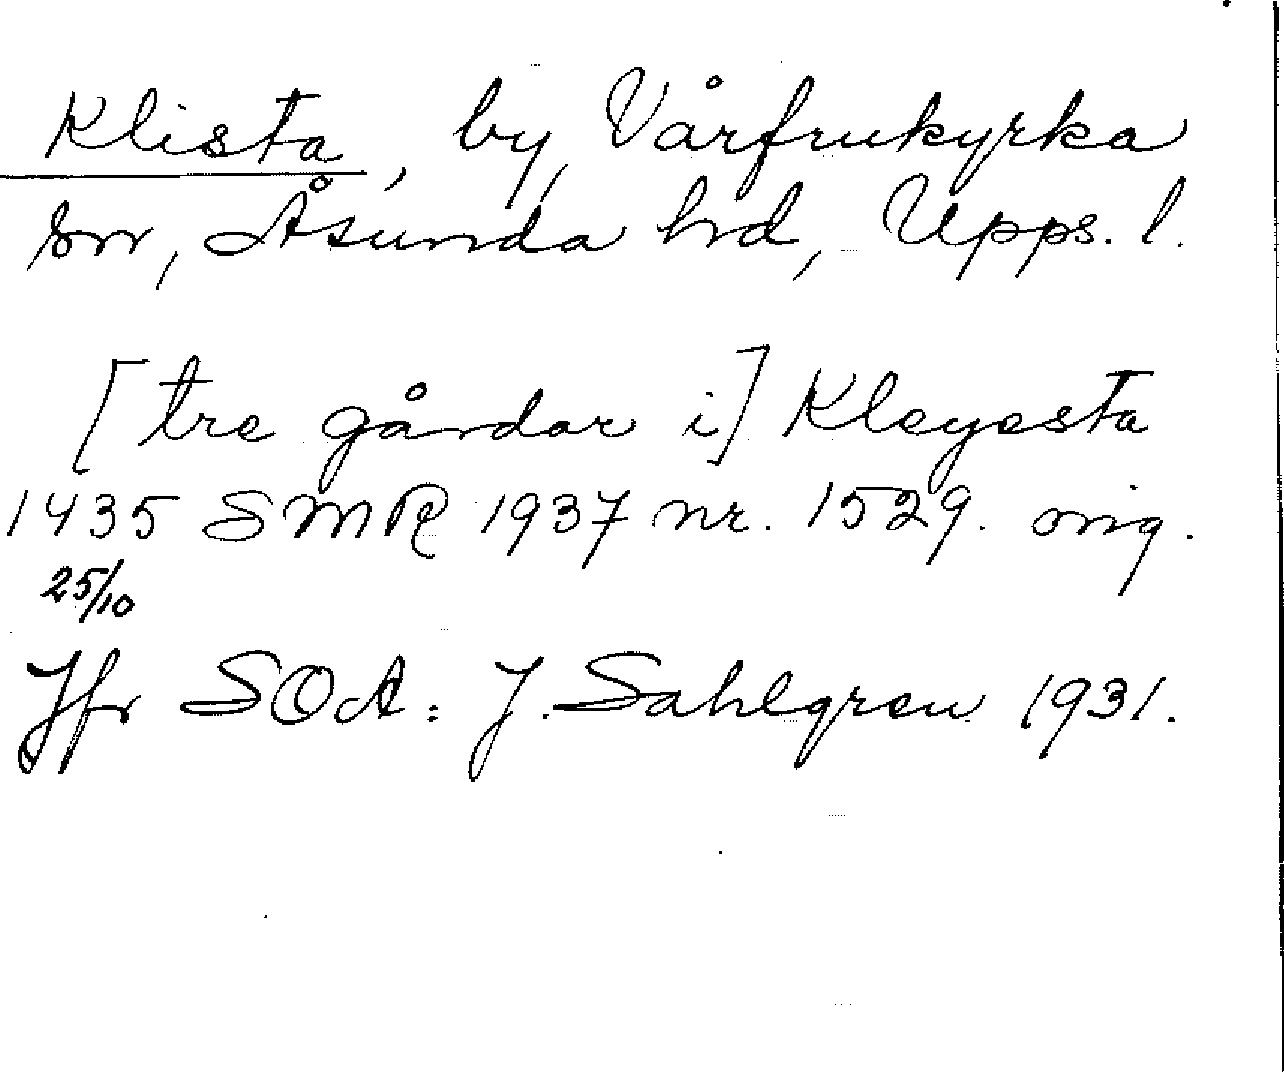 Klista, by, Vårfrukyrka
sn, Åsunda hd, Upps. l.
[tre gårdar i] Kleyesta
1435 SMR 1937 nr. 1529. orig.
25/10
Jfr SOA: J. Sahlgren 1931.